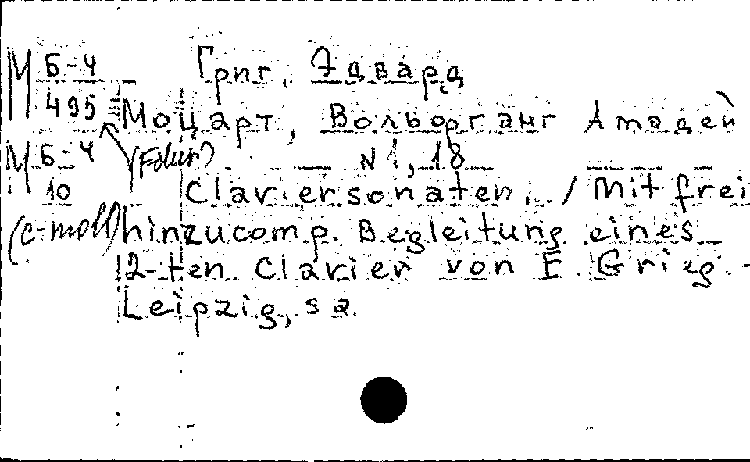 М Б-4 Григ, Эдвард
495 Моцарт, Вольфганг Амадей
М Б-4 (F dur) — N 1, 18
10 Claviersonaten. / Mit frei
(c-moll) hinzucomp. Begleitung eines
2-ten Clavier von E. Grieg -
Leipzig, s a.